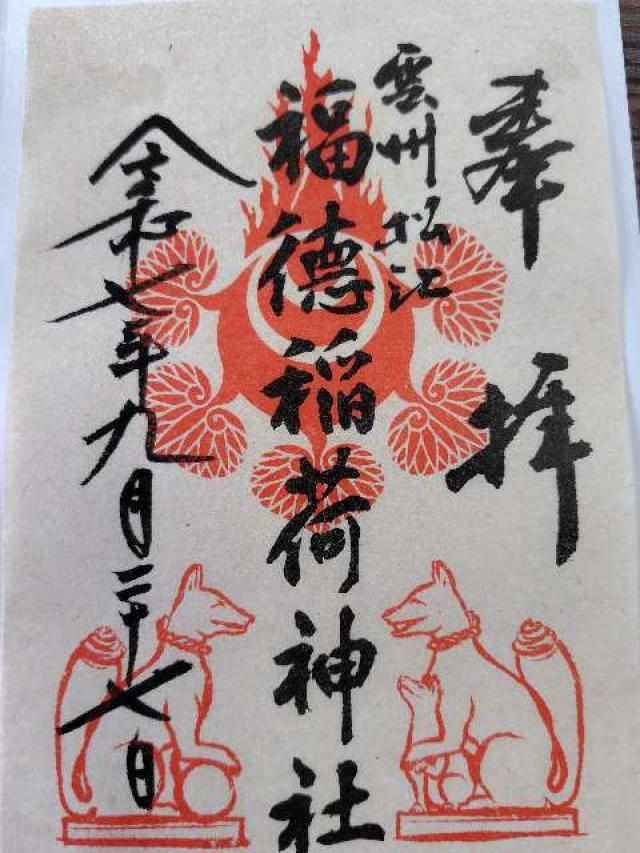 奉拝
雲州松江
福徳稲荷神社
令和七年九月二十七日